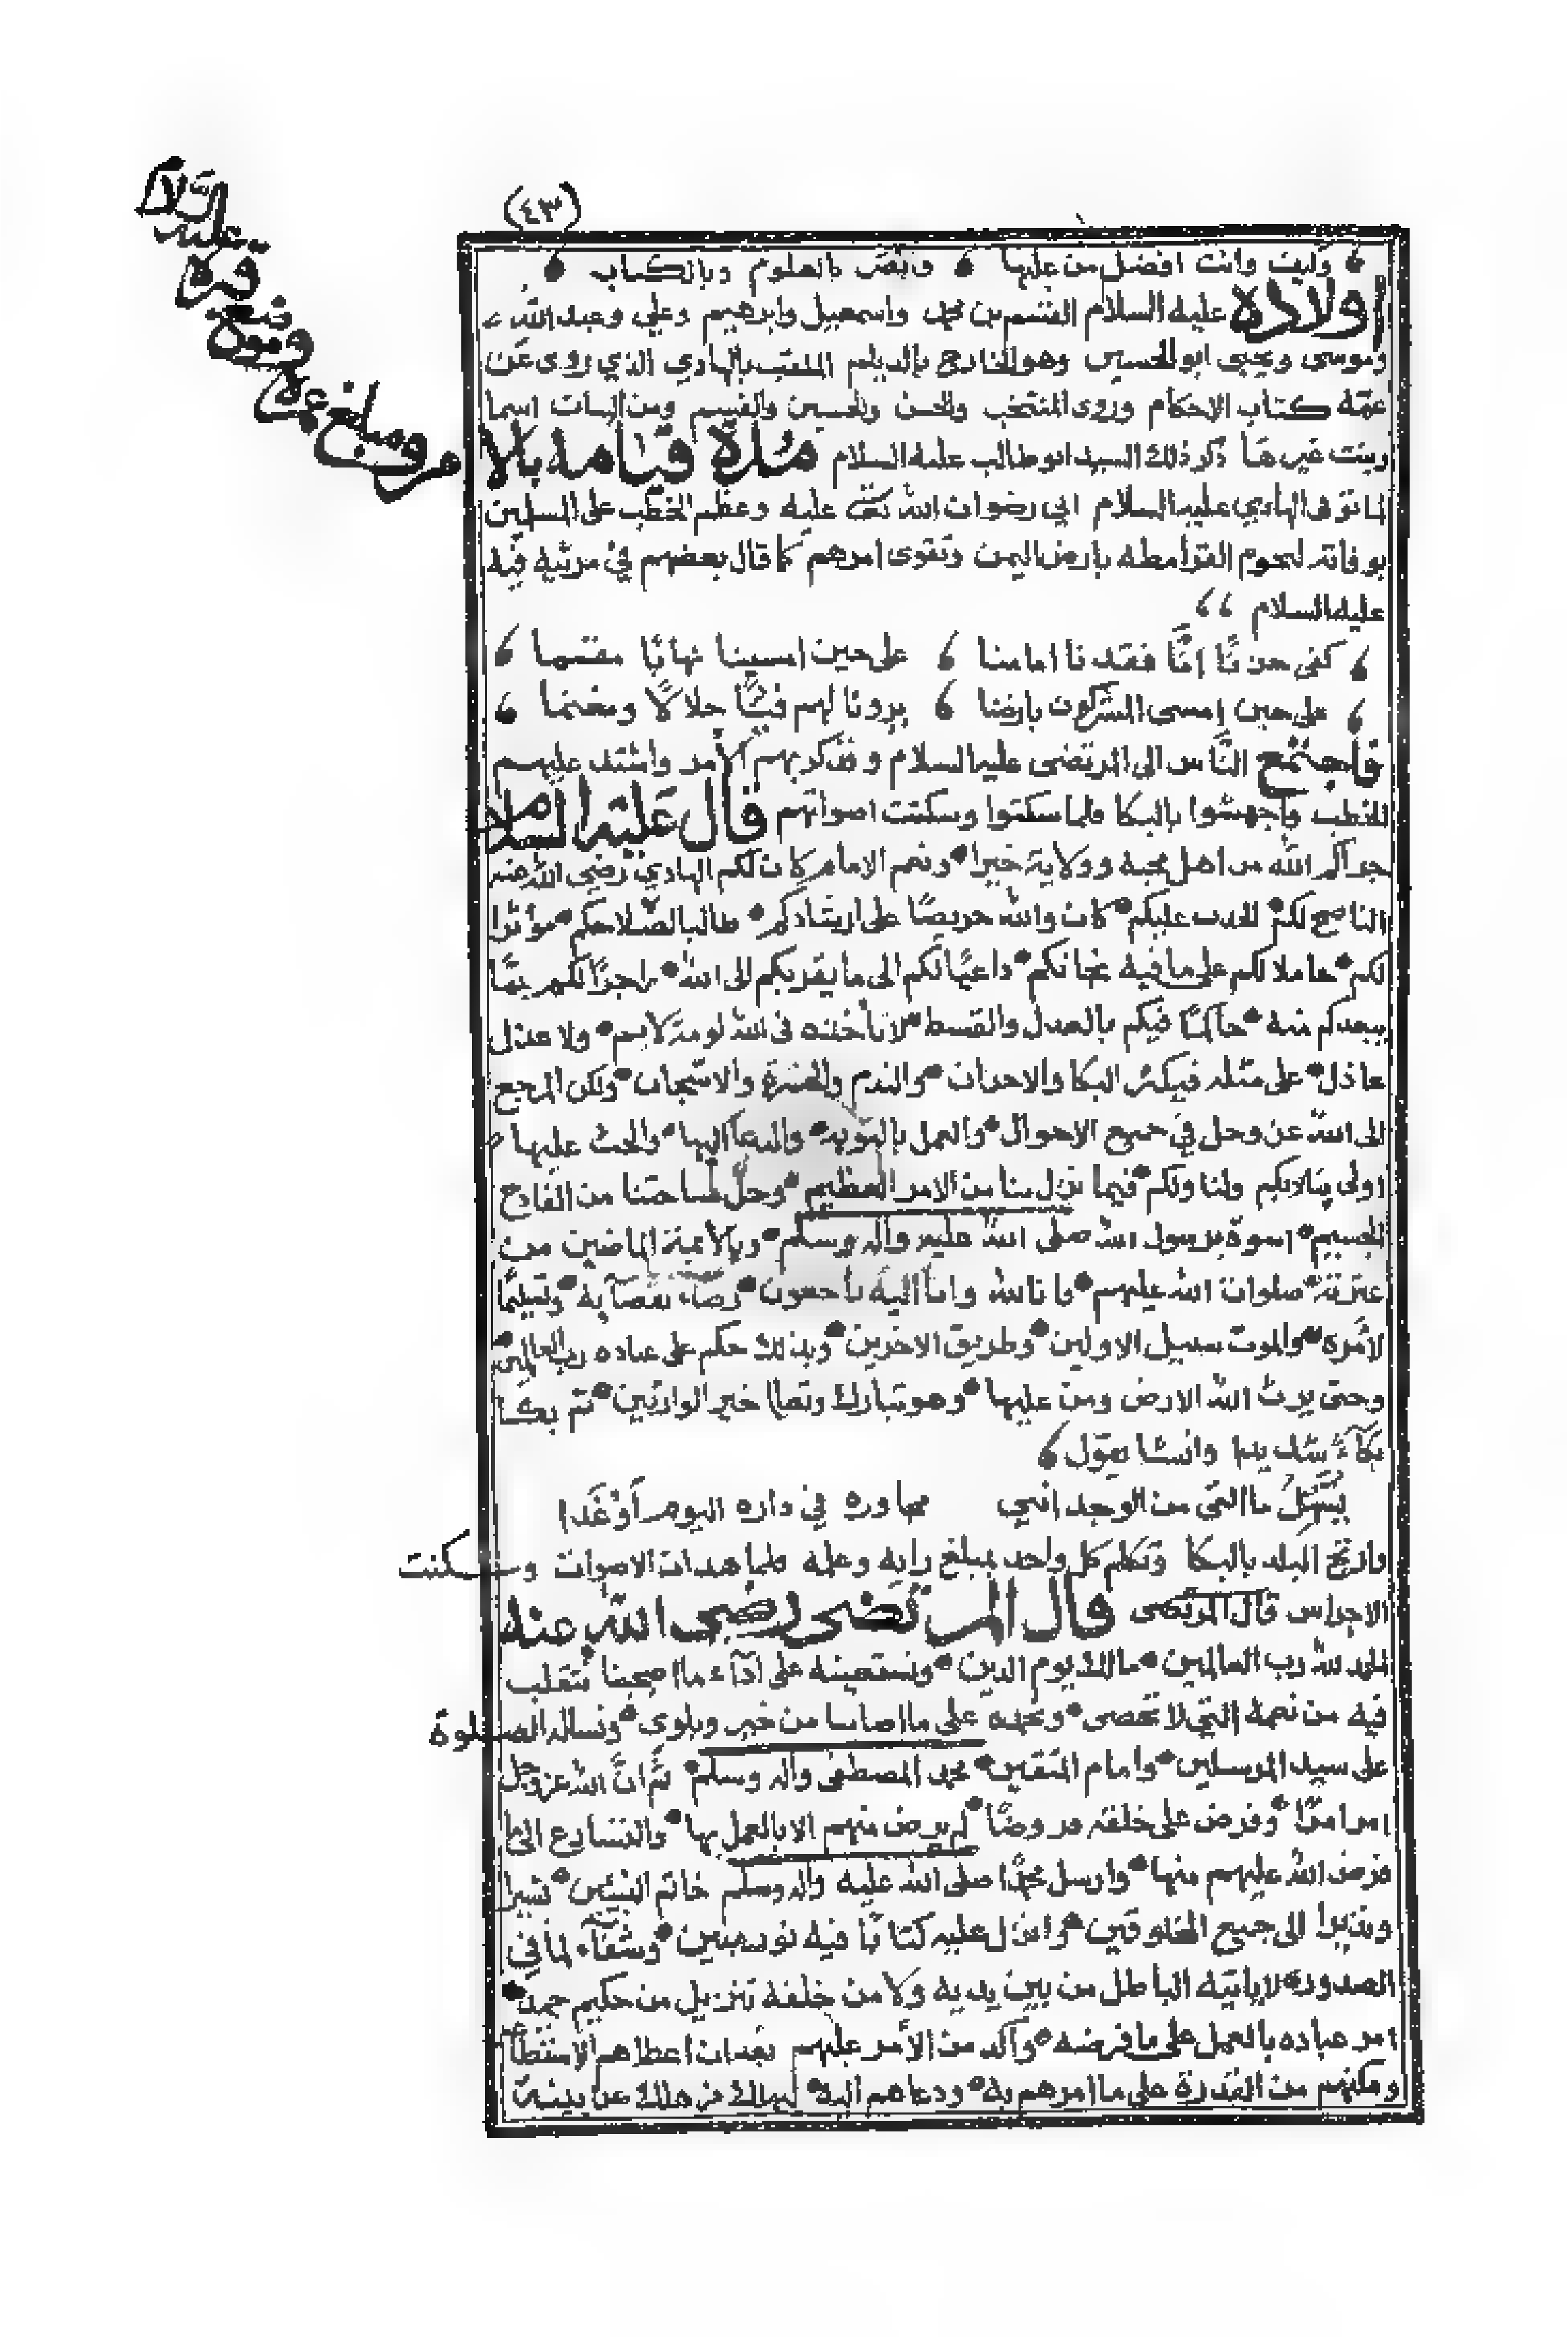 (٤٣)
وليت وانت افضل من عليها وابصر بالعلوم وبالكتاب
اولاده عليه السلام القسم بن محمد واسمعيل وابرهيم وعلي وعبد الله
وموسى ويحيى ابو الحسين وهو الخارج بالديلم الملقب بالهادي الذي روى عن
عمه كتاب الاحكام وروى المنتخب والحسن والحسين والقسم ومن البنات اسما
وبنت غيرها ذكر ذلك السيد ابو طالب عليه السلام مدة قيامه بالامر
ومبلغ عمره وموضع قبره عليه السلام
لما توفى الهادي عليه السلام الى رضوان الله تعالى عليه وعظم الخطب على المسلمين
بوفاته لنجوم القرامطه بارض اليمن وتقوى امرهم كما قال بعضهم في مرثيه فيه
عليه السلام
كفى حزنًا انّا فقدنا امامنا على حين امسينا نهابًا مقسما
على حين امسى المشركون بارضنا يرونا لهم فيئًا حلالًا ومغنما
فاجتمع النّاس الى المرتضى عليه السلام وقد كربهم الامر واشتد عليهم
الخطب واجهشوا بالبكا فلما سكتوا وسكنت اصواتهم قال عليه السلام
جزاكم الله من اهل محبه وولاية خيرا ونعم الامام كان لكم الهادي رضي الله عنه
الناصح لكم الحدب عليكم كان والله حريصًا على ارشادكم طالبا لصلاحكم مؤثرا
لكم حاملا لكم على ما فيه نجاتكم داعيًا لكم الى ما يقربكم الى الله زاجرًا لكم عمّا
يبعدكم منه حاكمًا فيكم بالعدل والقسط لا تأخذه في الله لومة لايم ولا عذل
عاذل على مثله فيكثر البكا والاحزان والندم والاشجان ولكن المرجع
الى الله عز وجل في جميع الاحوال والعمل بالتوبه والدعا اليها والحث عليها
اولى بنا وبكم ولنا ولكم فيما نزل بنا من الامر العظيم وحلّ بساحتنا من الفادح
الجسيم اسوة برسول الله صلى الله عليه واله وسلم وبالائمة الماضين من
عترته صلوات الله عليهم وانا لله وانا اليه راجعون رضاء بقضآيه وتسليمًا
لامره والموت سبيل الاولين وطريق الاخرين وبذلك حكم على عباده رب العالمين
وحتى يرث الله الارض ومن عليها وهو تبارك وتعالى خير الوارثين ثم بكا
بكآءً شديدا وانشا يقول
يسهّل ما القى من الوجد انني مجاوره في داره اليوم اوغدا
وارتج البلد بالبكا وتكلم كل واحد بمبلغ رايه وعلمه فلما هدات الاصوات وسكنت
الاجراس قال المرتضى قال المرتضى رضى الله عنه
الحمد لله رب العالمين مالك يوم الدين ونستعينه على ادآء ما اصبحنا نتقلب
فيه من نعمة التي لا تحصى ونحمده على ما اصابنا من خير وبلوى ونساله الصلوة
على سيد المرسلين وامام المتقين محمد المصطفى واله وسلم ثم انّ الله عز وجل
امر امرًا وفرض على خلقه فروضًا لم يرض منهم الا بالعمل بها والتسارع الى ما
فرض الله عليهم منها وارسل محمدًا صلى الله عليه واله وسلم خاتم النبيين بشيرا
ونذيرا الى جميع المخلوقين وانزل عليه كتابًا فيه نور مبين وشفآء لما في
الصدور لا ياتيه الباطل من بين يديه ولا من خلفه تنزيل من حكيم حميد
امر عباده بالعمل على ما فرضه واكد من الأمر عليهم بعد ان اعطاهم الاستطاعة
ومكنهم من القدرة على ما امرهم به ودعاهم اليه ليهلك من هلك عن بينة